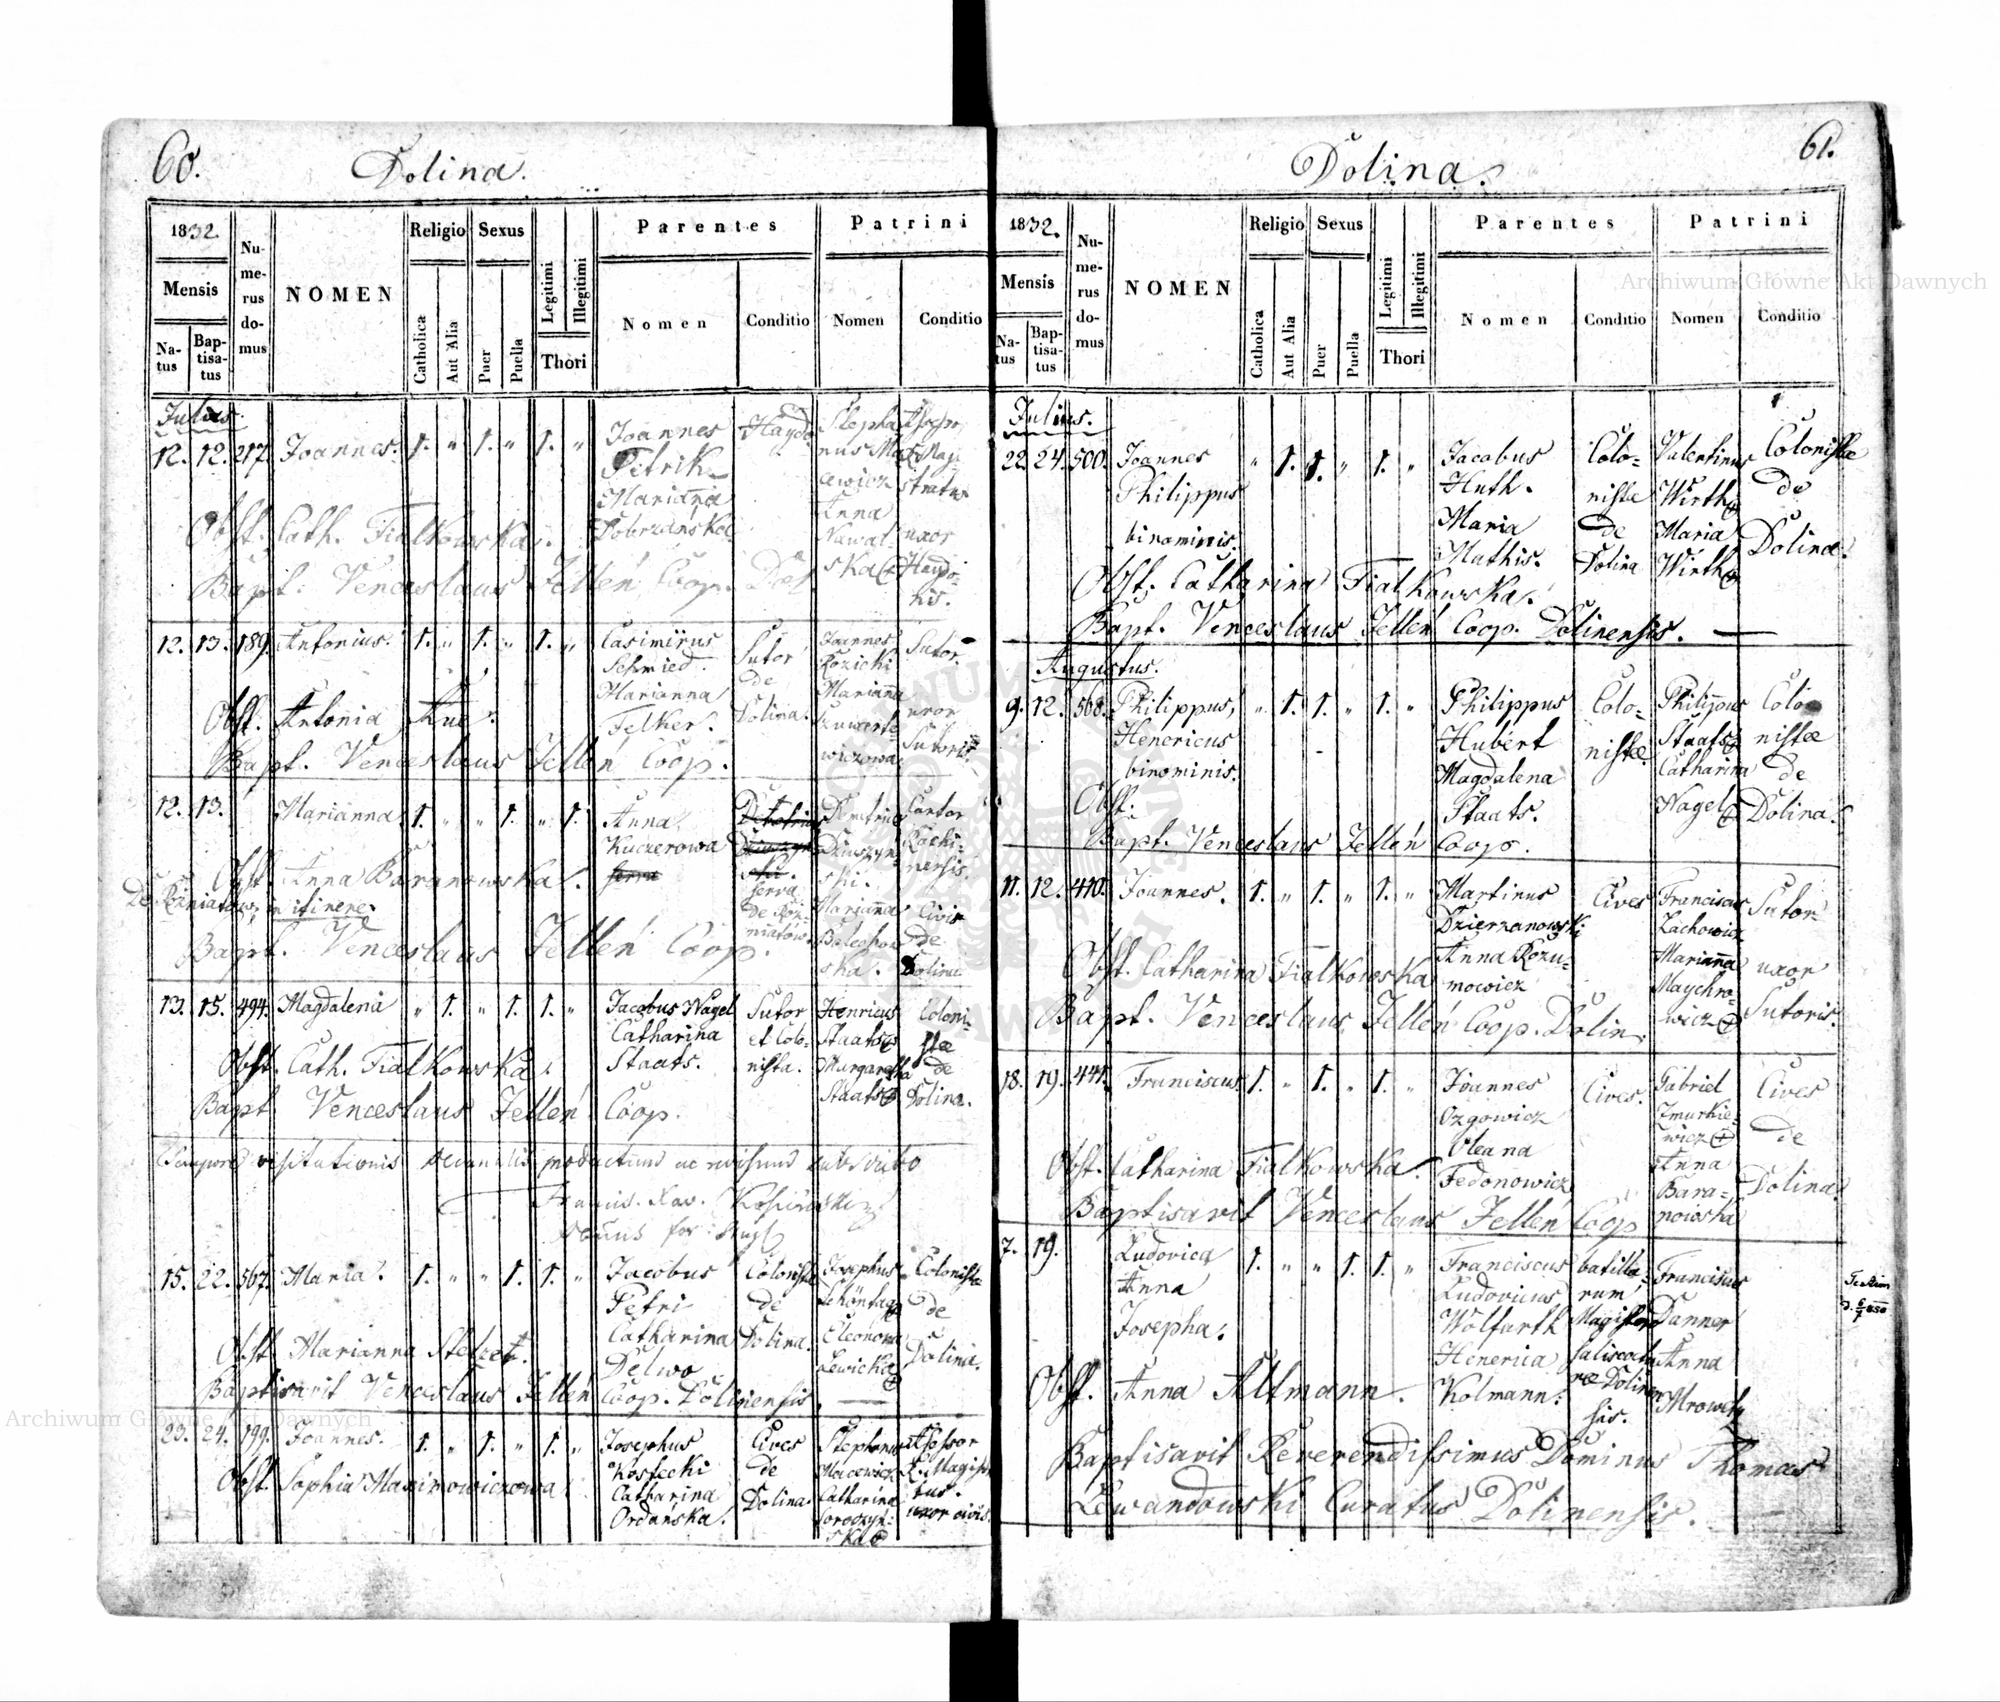 60.
Dolina.
1832.
Mensis
Na-
tus
Bap-
tisa-
tus
Nu-
me-
rus
do-
mus
NOMEN
Religio
Catholica
Aut Alia
Sexus
Puer
Puella
Legitimi
Illegitimi
Thori
Parentes
Nomen
Conditio
Patrini
Nomen
Conditio
Julius.
12. 12. 217. Joannes. 1. " 1. " 1. "
Joannes
Petrik
Marianna
Dobrzańska
Haydu
Stepha
nus Mac
ewicz
Anna
Nawal-
ska
Assessor
Magi
stratus
uxor
Haydo-
nis.
Obst. Cath. Fialkowska.
Bapt. Venceslaus Jellen Coop. Dol.
12. 13. 189. Antonius. 1. " 1. " 1. "
Casimirus
Schmied.
Marianna
Felker.
Sutor
de
Dolina.
Joannes
Kozicki
Marianna
wiczowa
Sutor.
uxor
Sutoris.
Obst. Antonia Kue.
Bapt. Venceslaus Jellen Coop.
12. 13. Marianna 1. " " 1. " 1.
Anna
Kuczerowa
serva
de Roz-
niatow.
Demetrius
Dziuszyn-
ski.
Marianna
ska.
Cantor
nensis.
Civis
de
Dolina
Obst. Anna Baranowska.
in itinere.
Bapt. Venceslaus Jellen Coop.
13. 15. 494. Magdalena " 1. " 1. 1. "
Jacobus Nagel
Catharina
Staats.
Sutor
et Colo-
nista.
Henricus
Staats
Margaretha
Staats
Coloni-
stae
de
Dolina.
Obst. Cath. Fialkowska.
Bapt. Venceslaus Jellen Coop.
Tempore visitationis decanalis productum ac revisum
15. 22. 567. Maria. 1. " " 1. 1. "
Jacobus
Petri
Catharina
Delwo
Colonistae
de
Dolina.
Josephus
Schöntag
Eleonora
Lewicka
Colonistae
de
Dolina.
Obst. Marianna
Baptisavit Venceslaus Jellen Coop. Dolinensis.
23. 24. 199. Joannes. 1. " 1. " 1. "
Josephus
Kostecki
Catharina
Ordanska.
Cives
de
Dolina.
Stephanus
Macewicz
Catharina
Sorodzyn-
ska
Assessor
Magist
tus.
uxor civis.
Obst. Sophia Maximowiczowa
61.
Dolina.
1832.
Mensis
Na-
tus
Bap-
tisa-
tus
Nu-
me-
rus
do-
mus
NOMEN
Religio
Catholica
Aut Alia
Sexus
Puer
Puella
Legitimi
Illegitimi
Thori
Parentes
Nomen
Conditio
Patrini
Nomen
Conditio
Julius.
22. 24. 500. Joannes
Philippus
binominis.
" 1. 1. " 1. "
Jacobus
Huth.
Maria
Mathis.
Colo-
nistae
de
Dolina
Valentinus
Wirth
Maria
Wirth
Colonistae
de
Dolina.
Obst. Catharina Fialkowska.
Bapt. Venceslaus Jellen Coop. Dolinensis.
Augustus.
9. 12. 568. Philippus,
Henericus
binominis.
" 1. 1. " 1. "
Philippus
Hubert
Magdalena
Staats.
Colo-
nistae
Philippus
Staats
Catharina
Nagel
Colo
nistae
de
Dolina.
Obst.
Bapt. Venceslaus Jellen Coop.
11. 12. 410. Joannes. 1. " 1. " 1. "
Martinus
Dzierzanowski
Anna Rozu-
mowicz
Cives
Franciscus
Lachowicz
Marianna
Maychro-
wicz
Sutor
uxor
Sutoris.
Obst. Catharina Fialkowska
Bapt. Venceslaus Jellen Coop. Dolin.
18. 19. 441. Franciscus 1. " 1. " 1. "
Joannes
Ozgowicz
Oleana
Fedonowicz
Cives.
Gabriel
Zmurkie-
wicz
Anna
Bara-
nowska
Cives
de
Dolina.
Obst. Catharina Fialkowska.
Baptisavit Venceslaus Jellen Coop
7. 19. Ludovica
Anna
Josepha.
1. " " 1. 1. "
Franciscus
Ludovicus
Wolfarth
Henerica
Kolmann.
batilla-
rum
Magister
saliscoctu
rae Dolinen
sis.
Franciscus
Danner
Anna
Obst. Anna Altmann.
Baptisavit Reverendissimus Dominus Thomas
Lewandowski Curatus Dolinensis.
Archiwum Główne Akt Dawnych
Archiwum Główne Akt Dawnych